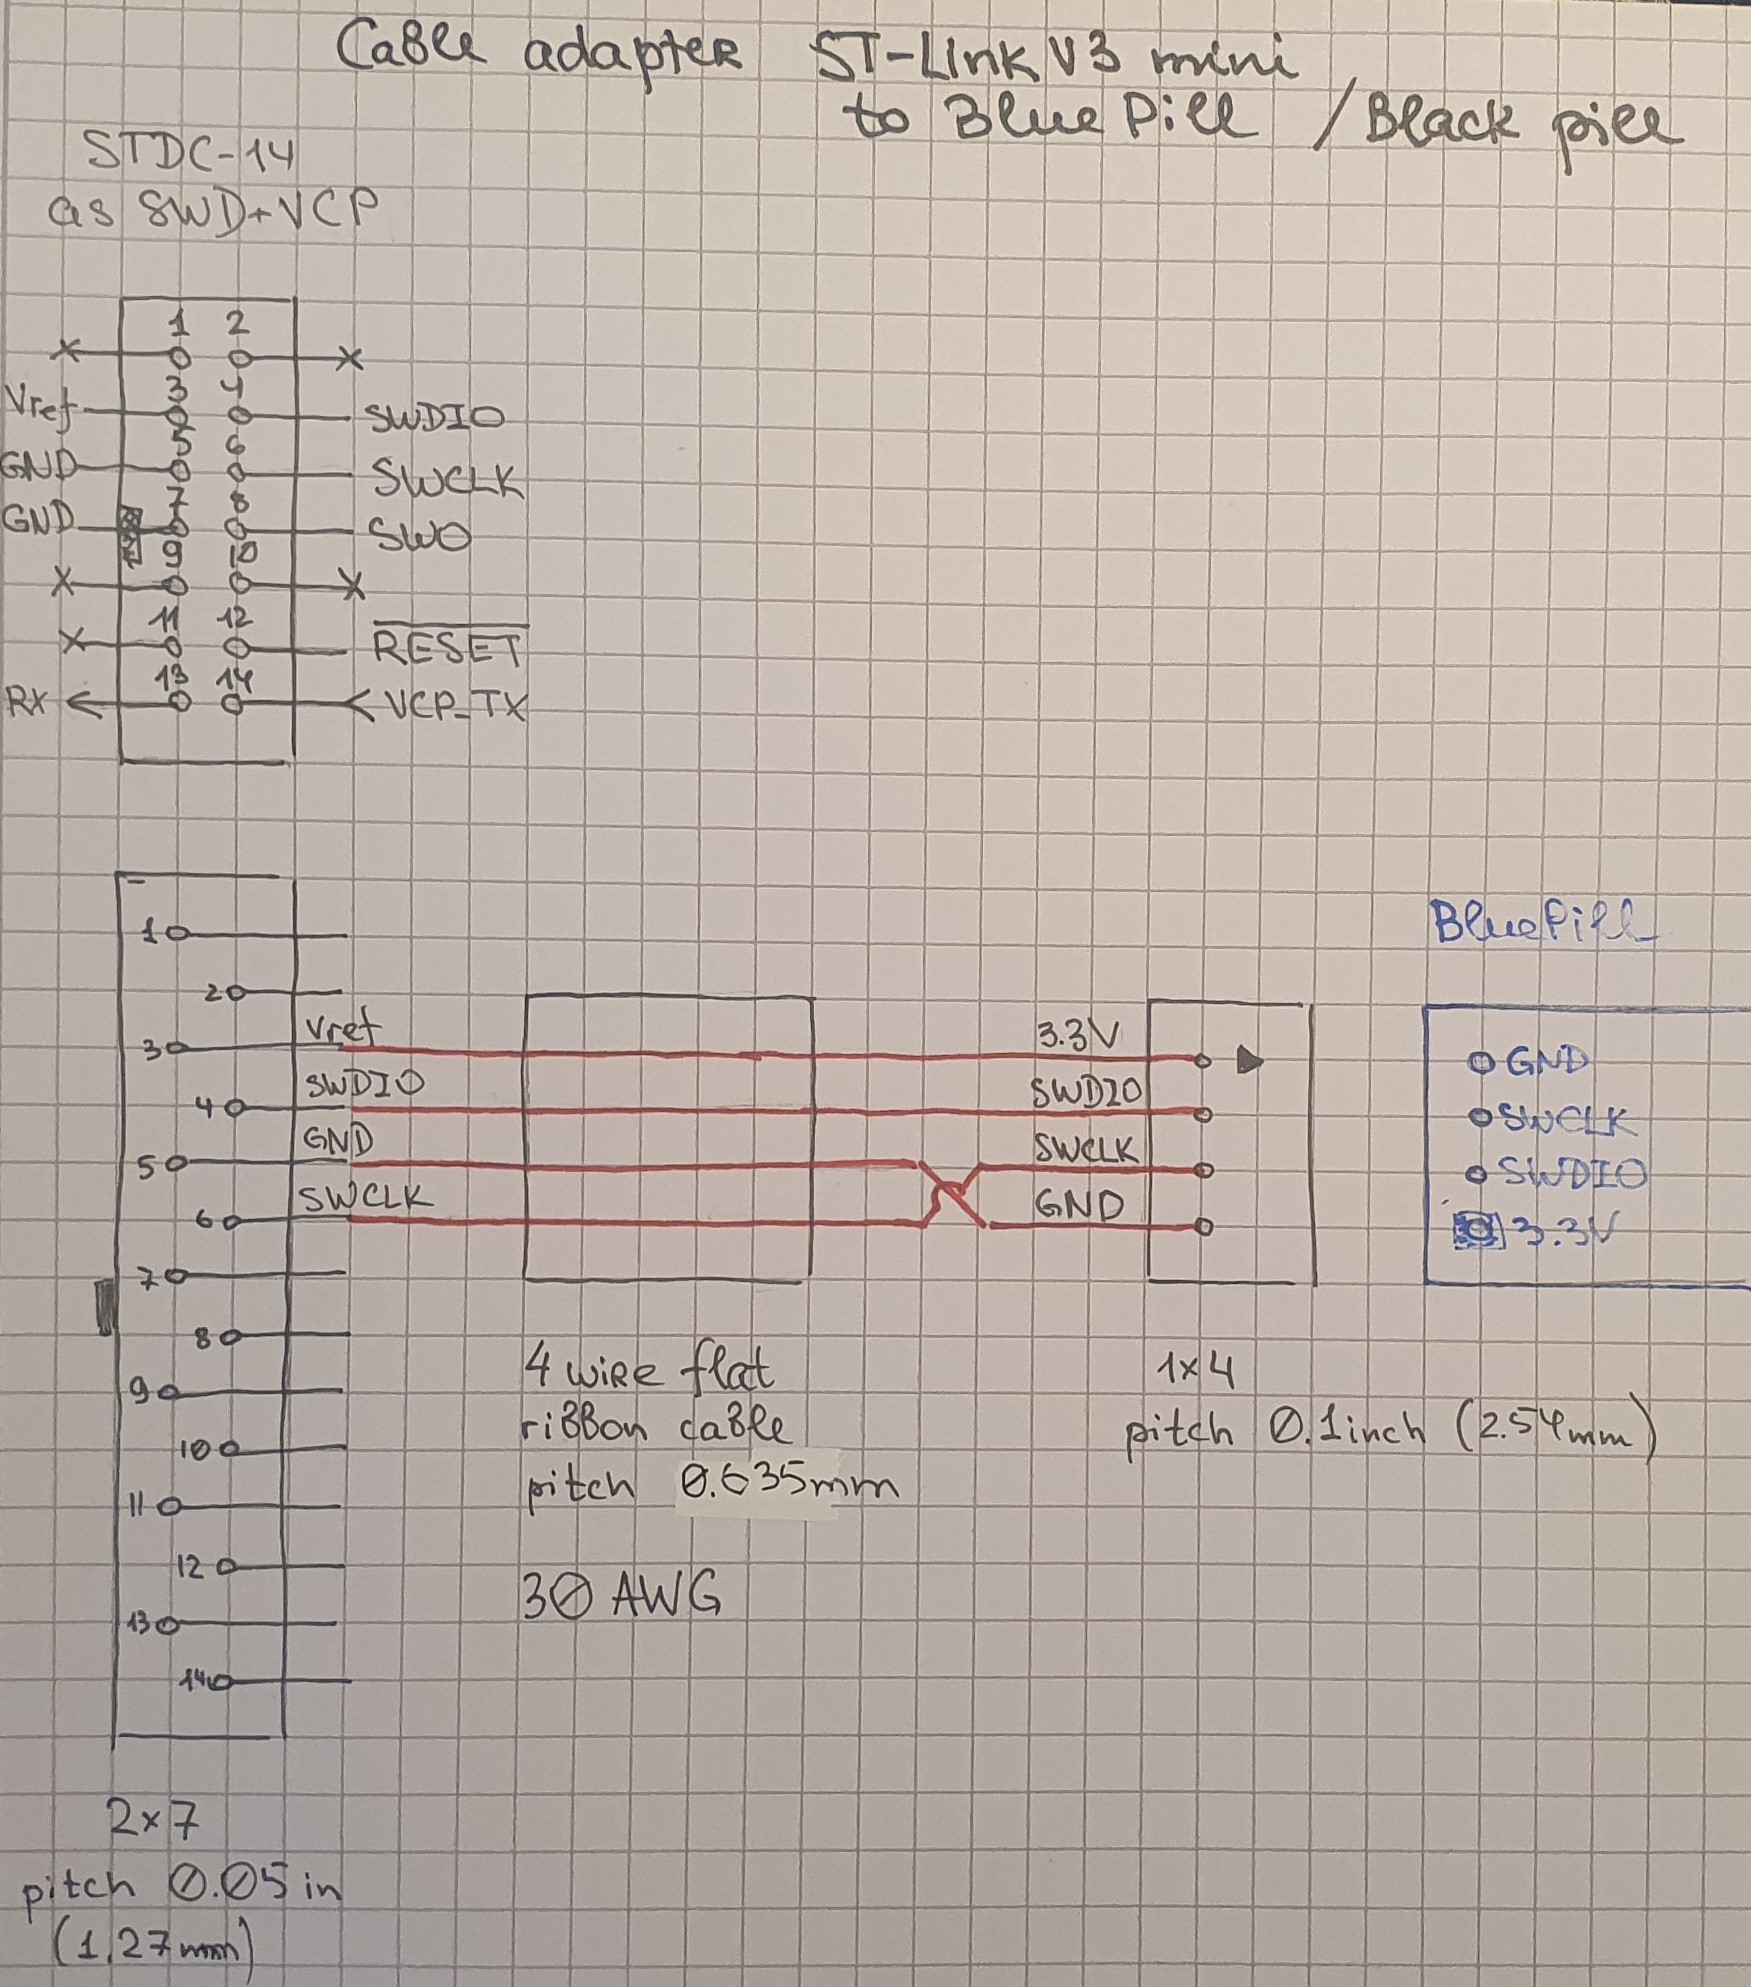 Cable adapter ST-Link V3 mini
to Blue Pill / Black pill
STDC-14
as SWD+VCP
1 2
3 4
Vref SWDIO
5 6
GND SWCLK
7 8
GND SWO
9 10
11 12
RESET
13 14
RX VCP_TX
BluePill
1
2
3 Vref 3.3V GND
4 SWDIO SWDIO SWCLK
5 GND SWCLK SWDIO
6 SWCLK GND 3.3V
7
8
9
10
11
12
13
14
4 wire flat
ribbon cable
pitch 0.635mm
30 AWG
1x4
pitch 0.1inch (2.54mm)
2x7
pitch 0.05in
(1.27mm)